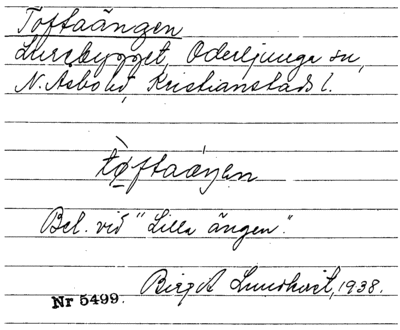 Toftaängen
Lursbygget, Oderljunga sn,
N. Åsbo hd, Kristianstads l.
tøftaæŋen
Bel. vid "Lilla ängen".
Birgit Lundkvist, 1938.
Nr 5499.